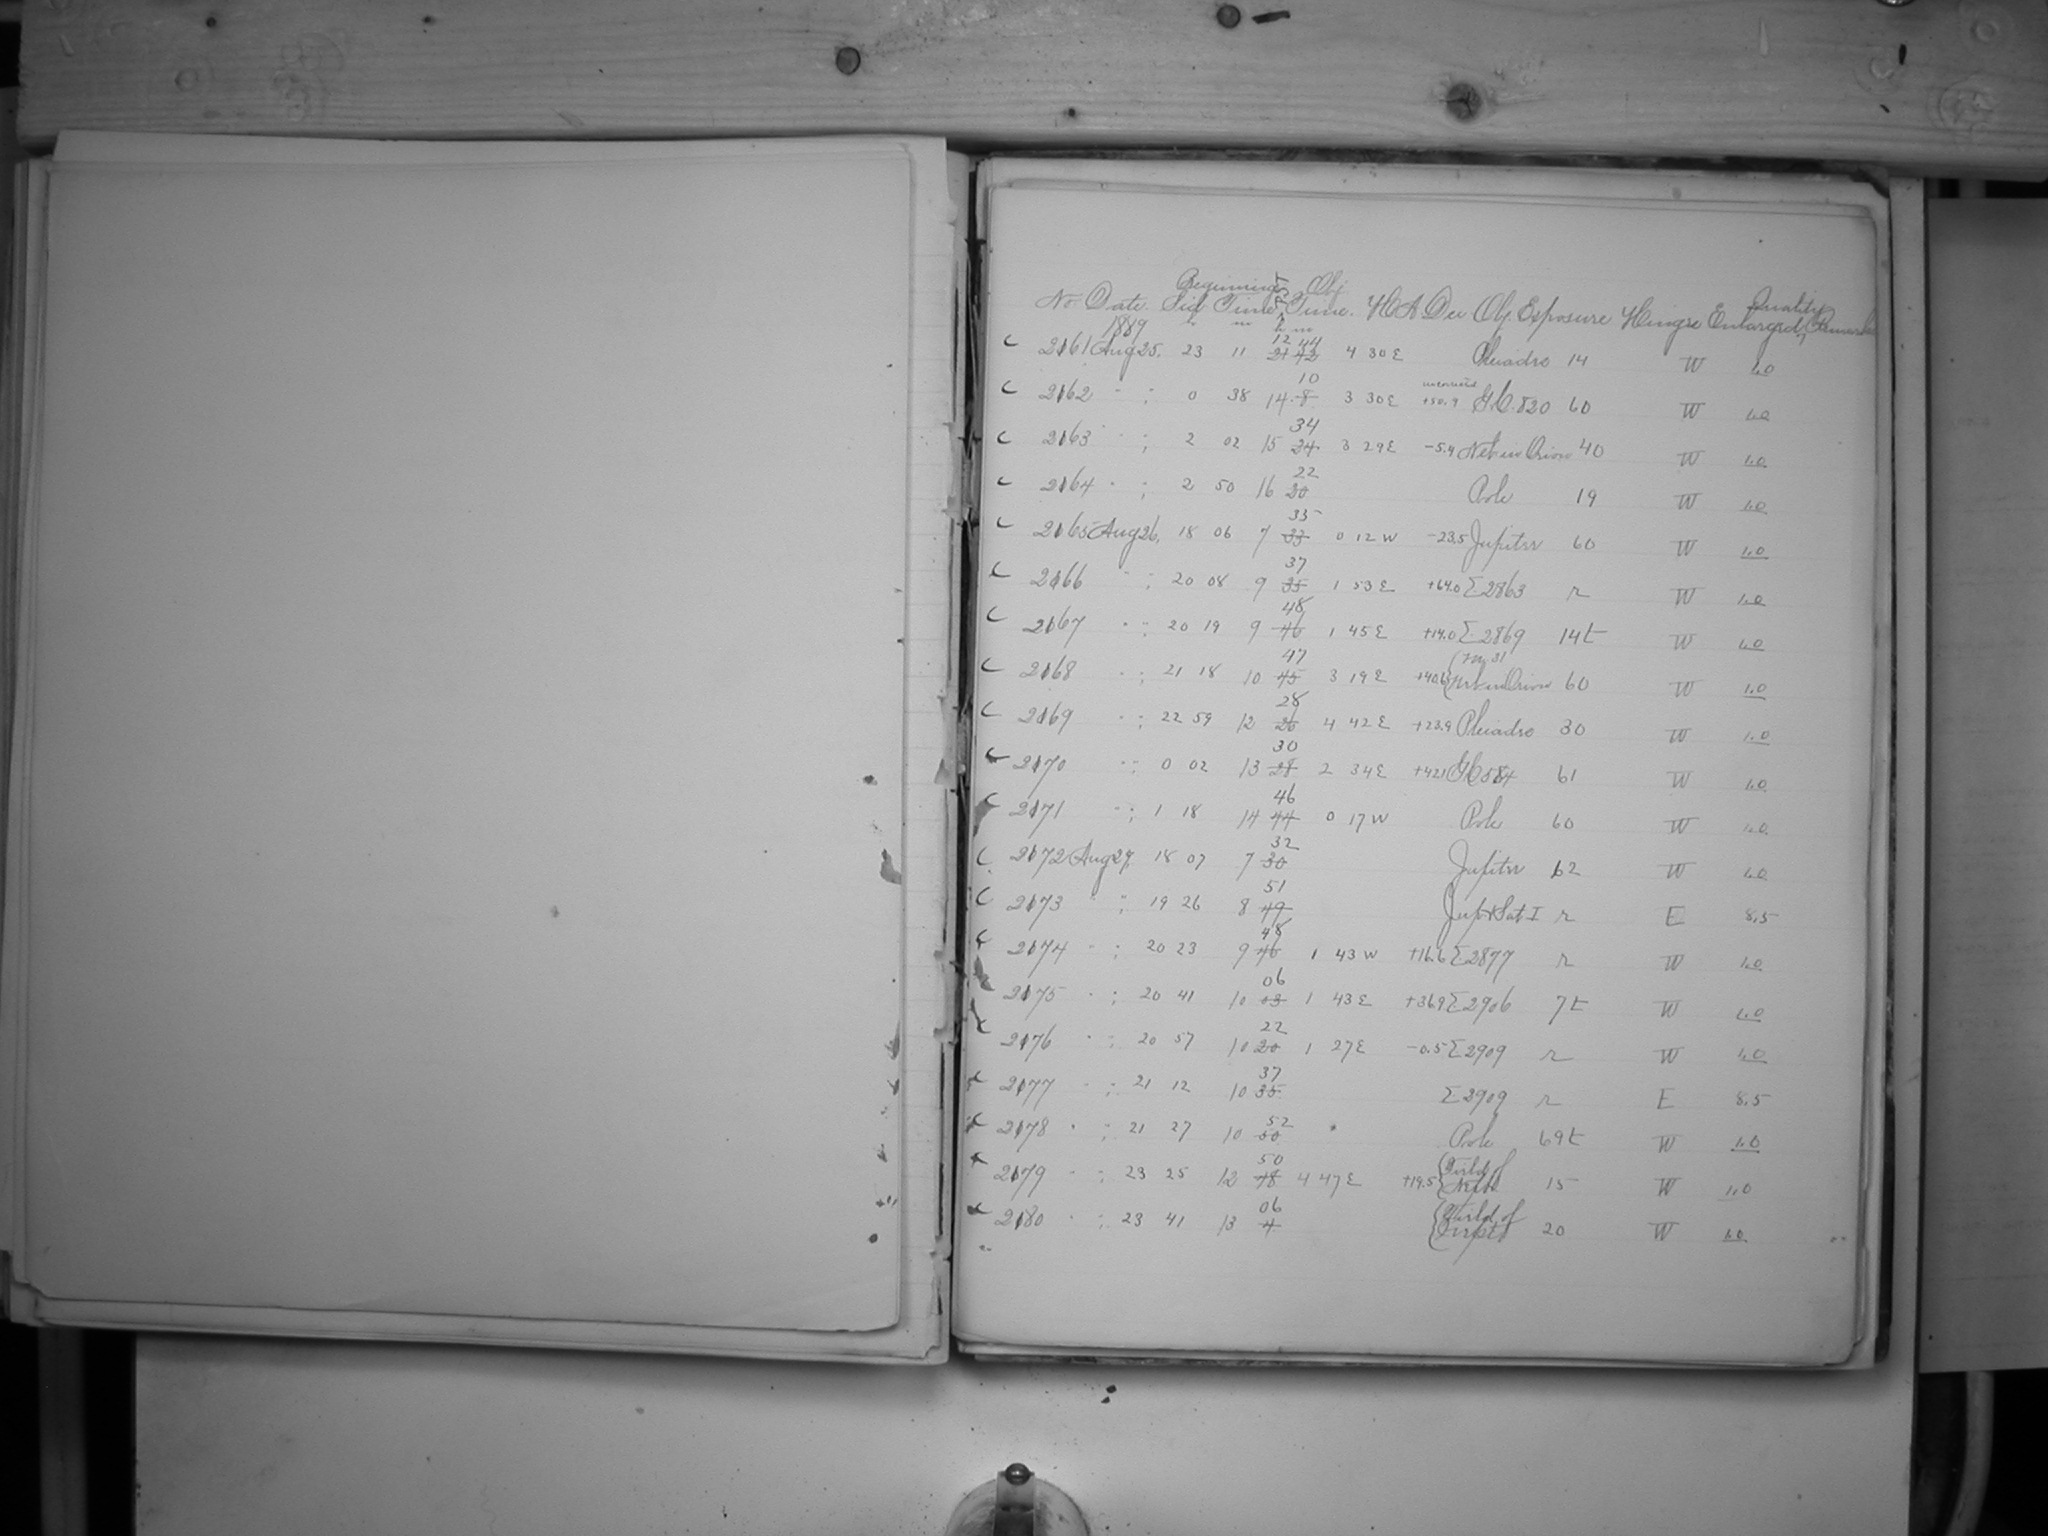 Beginning Obj
No. Date. Sid Time PST Time. HA Dec Obj. Exposure Hinge Enlarged Quality Remarks
1889 h m h m
C 2161 Aug 25. 23 11 12 44 4 30 E Pleiades 14 W 1.0
10
C 2162 " ; 0 38 14 8 3 30 E +50.9 G.C. 820 60 W 1.0
34
C 2163 " ; 2 02 15 24 3 29 E -5.4 Neb in Orion 40 W 1.0
22
C 2164 " ; 2 50 16 20 Pole 19 W 1.0
35
C 2165 Aug 26. 18 06 7 33 0 12 W -23.5 Jupiter 60 W 1.0
37
C 2166 " ; 20 08 9 35 1 53 E +64.0 Σ 2863 r W 1.0
48
C 2167 " ; 20 19 9 46 1 45 E +14.0 Σ 2869 14t W 1.0
47 M 31
C 2168 " ; 21 18 10 45 3 19 E +40.6 Neb in Orion 60 W 1.0
28
C 2169 " ; 22 59 12 26 4 42 E +23.9 Pleiades 30 W 1.0
30
C 2170 " ; 0 02 13 28 2 34 E +42.1 G.C 584 61 W 1.0
46
C 2171 " ; 1 18 14 44 0 17 W Pole 60 W 1.0
32
C 2172 Aug 27. 18 07 7 30 Jupiter 62 W 1.0
51
C 2173 " ; 19 26 8 49 Jup & Sat I r E 8.5
48
C 2174 " ; 20 23 9 46 1 43 W +16.6 Σ 2877 r W 1.0
06
C 2175 " ; 20 41 10 03 1 43 E +36.9 Σ 2906 7t W 1.0
22
C 2176 " ; 20 57 10 20 1 27 E -0.5 Σ 2909 r W 1.0
37
C 2177 " ; 21 12 10 35 Σ 2909 r E 8.5
52
C 2178 " ; 21 27 10 50 " Pole 69t W 1.0
50 Field of
C 2179 " ; 23 25 12 48 4 47 E +19.5 15 W 1.0
06 Field of
C 2180 " ; 23 41 13 4 20 W 1.0